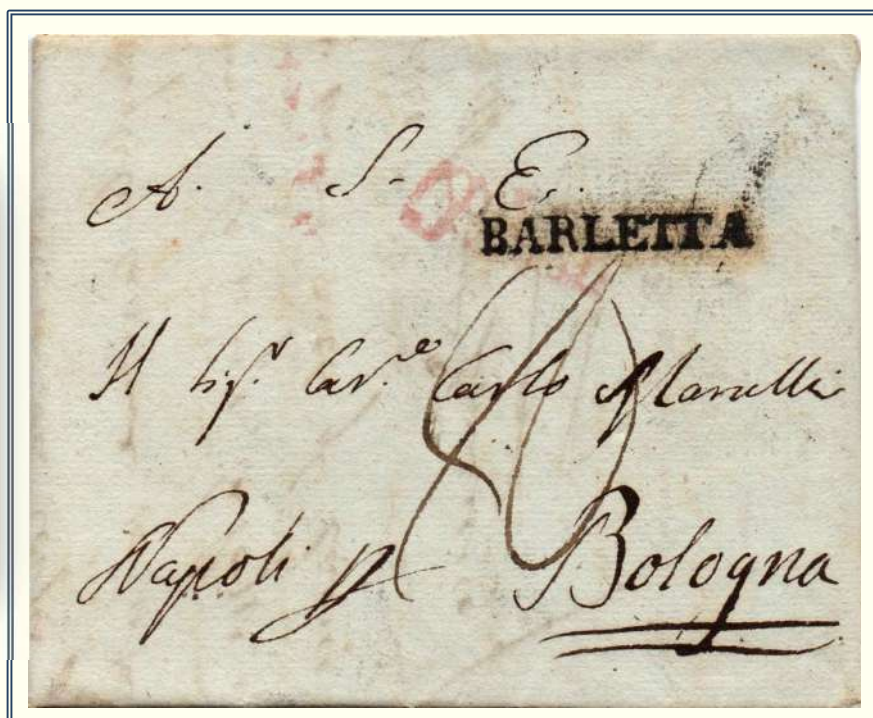 A. S. E.
BARLETTA
Il Sigr. Cav.e Carlo
Napoli pr Bologna